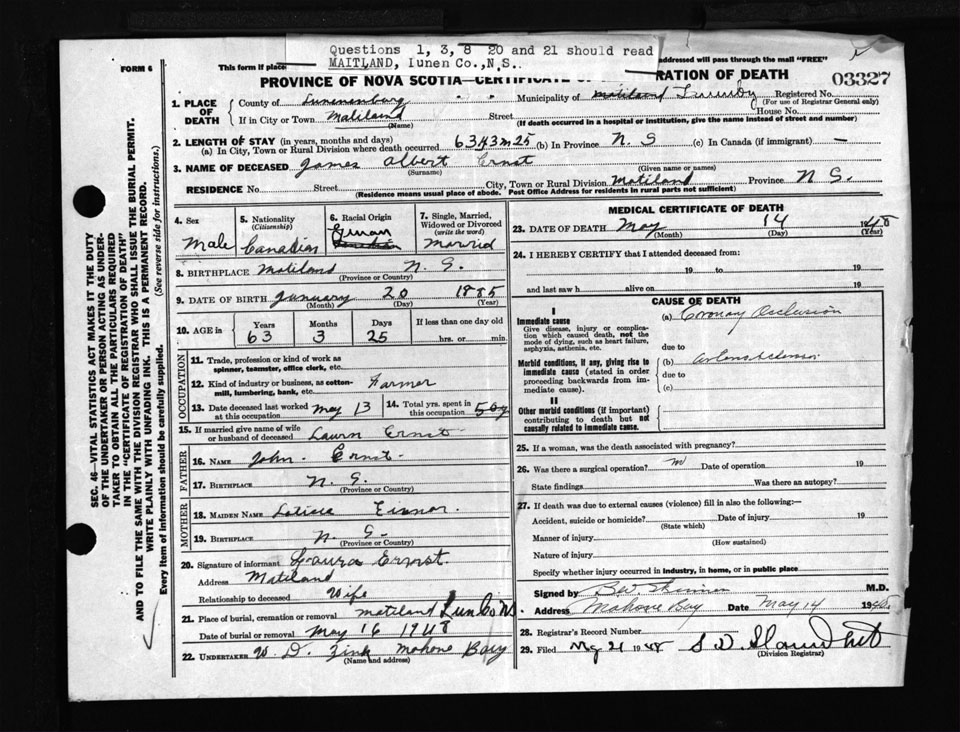 Questions 1, 3, 8 20 and 21 should read
MAITLAND, Iunen Co.,N.S..
FORM 6
This form if place
addressed will pass through the mail "FREE"
PROVINCE OF NOVA SCOTIA—CERTIFICATE OF RATION OF DEATH
03327
1. PLACE OF DEATH
County of Lunenburg Municipality of Matiland Registered No.
(For use of Registrar General only)
If in City or Town Matiland Street House No.
(Name) (If death occurred in a hospital or institution, give the name instead of street and number)
2. LENGTH OF STAY (in years, months and days)
(a) In City, Town or Rural Division where death occurred 63 3m 25 (b) In Province N. S (c) In Canada (if immigrant) —
3. NAME OF DECEASED James Albert Ernst
(Surname) (Given name or names)
RESIDENCE No. Street City, Town or Rural Division Matiland Province N S.
(Residence means usual place of abode. Post Office Address for residents in rural parts not sufficient)
4. Sex
Male
5. Nationality
(Citizenship)
Canadian
6. Racial Origin
German
7. Single, Married, Widowed or Divorced
(write the word)
Married
8. BIRTHPLACE Matiland N. S.
(Province or Country)
9. DATE OF BIRTH January 20 1885
(Month) (Day) (Year)
10. AGE in
Years Months Days If less than one day old
63 3 25 hrs. or min.
OCCUPATION
11. Trade, profession or kind of work as
spinner, teamster, office clerk, etc.
12. Kind of industry or business, as cotton-
mill, lumbering, bank, etc. Farmer
13. Date deceased last worked at this occupation May 13
14. Total yrs. spent in this occupation 50y
15. If married give name of wife
or husband of deceased Laura Ernst
FATHER
16. NAME John Ernst
17. BIRTHPLACE N. S.
(Province or Country)
MOTHER
18. MAIDEN NAME
19. BIRTHPLACE N S.
(Province or Country)
20. Signature of informant Laura Ernst.
Address Matiland
Relationship to deceased Wife
21. Place of burial, cremation or removal Matiland Lun Co N.S.
Date of burial or removal May 16 1948
22. UNDERTAKER W. D. Zink Mahone Bay
(Name and address)
MEDICAL CERTIFICATE OF DEATH
23. DATE OF DEATH May 14 1948
(Month) (Day) (Year)
24. I HEREBY CERTIFY that I attended deceased from:
19 to 19
and last saw h alive on 19
CAUSE OF DEATH
I
Immediate cause
Give disease, injury or complica-
tion which caused death, not the
mode of dying, such as heart failure,
asphyxia, asthenia, etc.
(a) Coronary Occlusion
due to
Morbid conditions, if any, giving rise to
immediate cause (stated in order
proceeding backwards from im-
mediate cause).
(b) Arteriosclerosis
due to
(c)
II
Other morbid conditions (if important)
contributing to death but not
causally related to immediate cause.
25. If a woman, was the death associated with pregnancy?
26. Was there a surgical operation? no Date of operation 19
State findings Was there an autopsy?
27. If death was due to external causes (violence) fill in also the following:—
Accident, suicide or homicide? Date of injury 19
(State which)
Manner of injury
(How sustained)
Nature of injury
Specify whether injury occurred in industry, in home, or in public place
Signed by M.D.
Address Mahone Bay Date May 14 1948
28. Registrar's Record Number
29. Filed May 21 1948
(Division Registrar)
SEC. 46—VITAL STATISTICS ACT MAKES IT THE DUTY
OF THE UNDERTAKER OR PERSON ACTING AS UNDER-
TAKER TO OBTAIN ALL THE PARTICULARS REQUIRED
IN THE "CERTIFICATE OF REGISTRATION OF DEATH"
AND TO FILE THE SAME WITH THE DIVISION REGISTRAR WHO SHALL ISSUE THE BURIAL PERMIT.
WRITE PLAINLY WITH UNFADING INK. THIS IS A PERMANENT RECORD.
Every item of information should be carefully supplied. (See reverse side for instructions.)